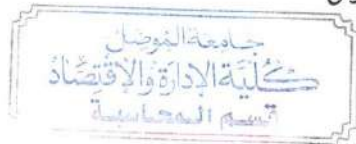 جامعة الموصل
كُلِّيَّة الإدَارَةِ وَالإقْتِصَادْ
قسم المحاسبة